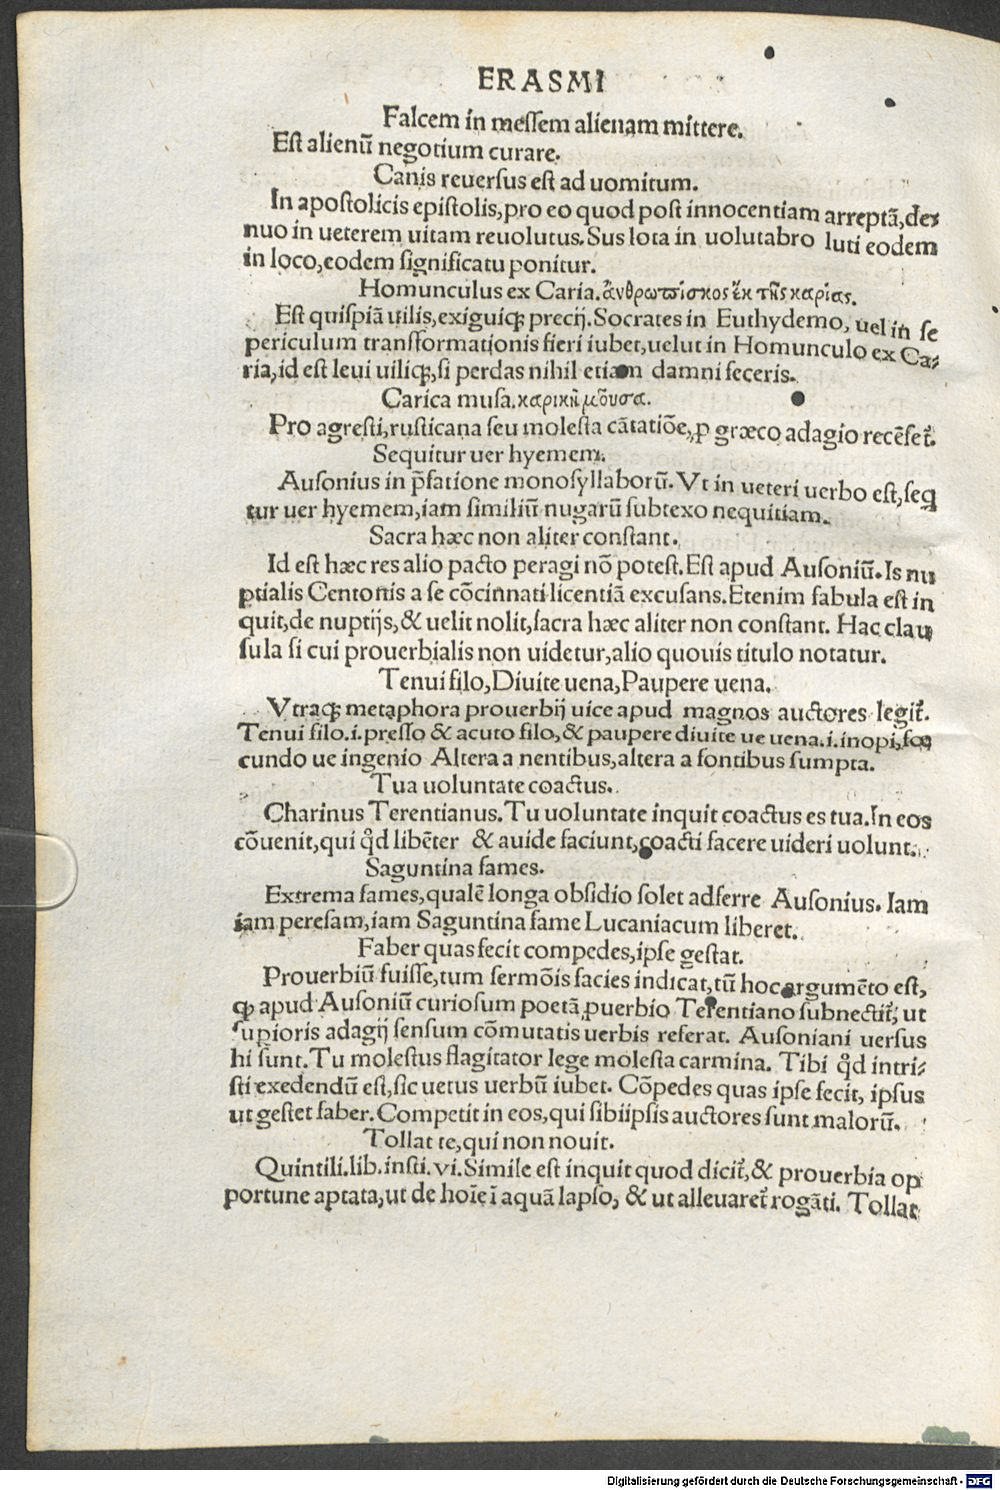 ERASMI
Falcem in messem alienam mittere.
Est alienū negotium curare.
Canis reuersus est ad uomitum.
In apostolicis epistolis,pro eo quod post innocentiam arreptā,de-
nuo in ueterem uitam reuolutus.Sus lota in uolutabro luti eodem
in loco,eodem significatu ponitur.
Homunculus ex Caria.ἀνθρωπίσκος ἐκ τῆς καρίας.
Est quispiā uilis,exiguiqꝫ precij.Socrates in Euthydemo, uel in se
periculum transformationis fieri iubet,uelut in Homunculo ex Ca-
ria,id est leui uiliqꝫ,si perdas nihil etiam damni feceris.
Carica musa.καρικὴ μοῦσα.
Pro agresti,rusticana seu molesta cātatiōe,ꝓ græco adagio recēset᷑.
Sequitur uer hyemem.
Ausonius in p̄fatione monosyllaborū.Vt in ueteri uerbo est,seq
tur uer hyemem,iam similiū nugarū subtexo nequitiam.
Sacra hæc non aliter constant.
Id est hæc res alio pacto peragi nō potest.Est apud Ausoniū.Is nu
ptialis Centonis a se cōcinnati licentiā excusans.Etenim fabula est in
quit,de nuptijs,& uelit nolit,sacra hæc aliter non constant. Hac clau
sula si cui prouerbialis non uidetur,alio quouis titulo notatur.
Tenui filo,Diuite uena,Paupere uena.
Vtraqꝫ metaphora prouerbij uice apud magnos auctores legit᷑.
Tenui filo.i.presso & acuto filo,& paupere diuite ue uena.i.inopi,foe
cundo ue ingenio Altera a nentibus,altera a fontibus sumpta.
Tua uoluntate coactus.
Charinus Terentianus.Tu uoluntate inquit coactus es tua.In eos
cōuenit,qui qd̄ libēter & auide faciunt,coacti facere uideri uolunt.
Saguntina fames.
Extrema fames,qualē longa obsidio solet adferre Ausonius. Iam
iam peresam,iam Saguntina fame Lucaniacum liberet.
Faber quas fecit compedes,ipse gestat.
Prouerbiū fuisse,tum sermōis facies indicat,tū hoc argumēto est,
qꝫ apud Ausoniū curiosum poetā,ꝓuerbio Terentiano subnectit᷑, ut
supioris adagij sensum cōmutatis uerbis referat. Ausoniani uersus
hi sunt.Tu molestus flagitator lege molesta carmina. Tibi qd̄ intri-
sti exedendū est,sic uetus uerbū iubet. Cōpedes quas ipse fecit, ipsus
ut gestet faber.Competit in eos,qui sibiipsis auctores sunt malorū.
Tollat te,qui non nouit.
Quintili.lib.insti.vi.Simile est inquit quod dicit᷑,& prouerbia op
portune aptata,ut de hoīe ī aquā lapso, & ut alleuaret᷑ rogāti. Tollat
Digitalisierung gefördert durch die Deutsche Forschungsgemeinschaft - DFG